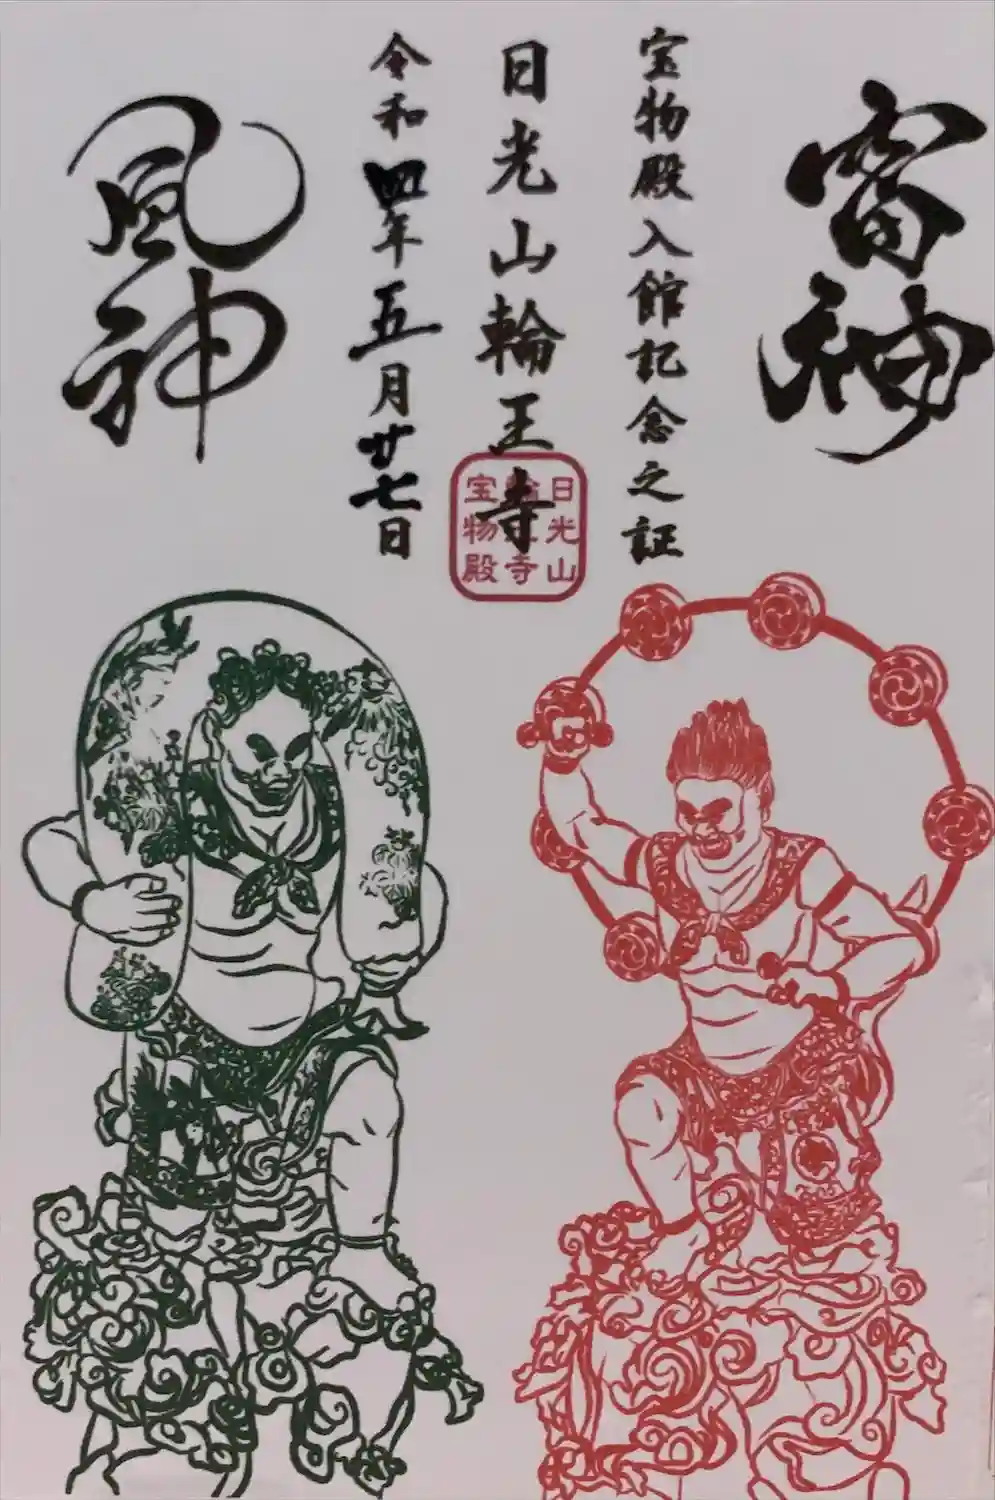 雷神
宝物殿入館記念之証
日光山輪王寺
令和四年五月廿七日
風神
日光山
輪王寺
宝物殿